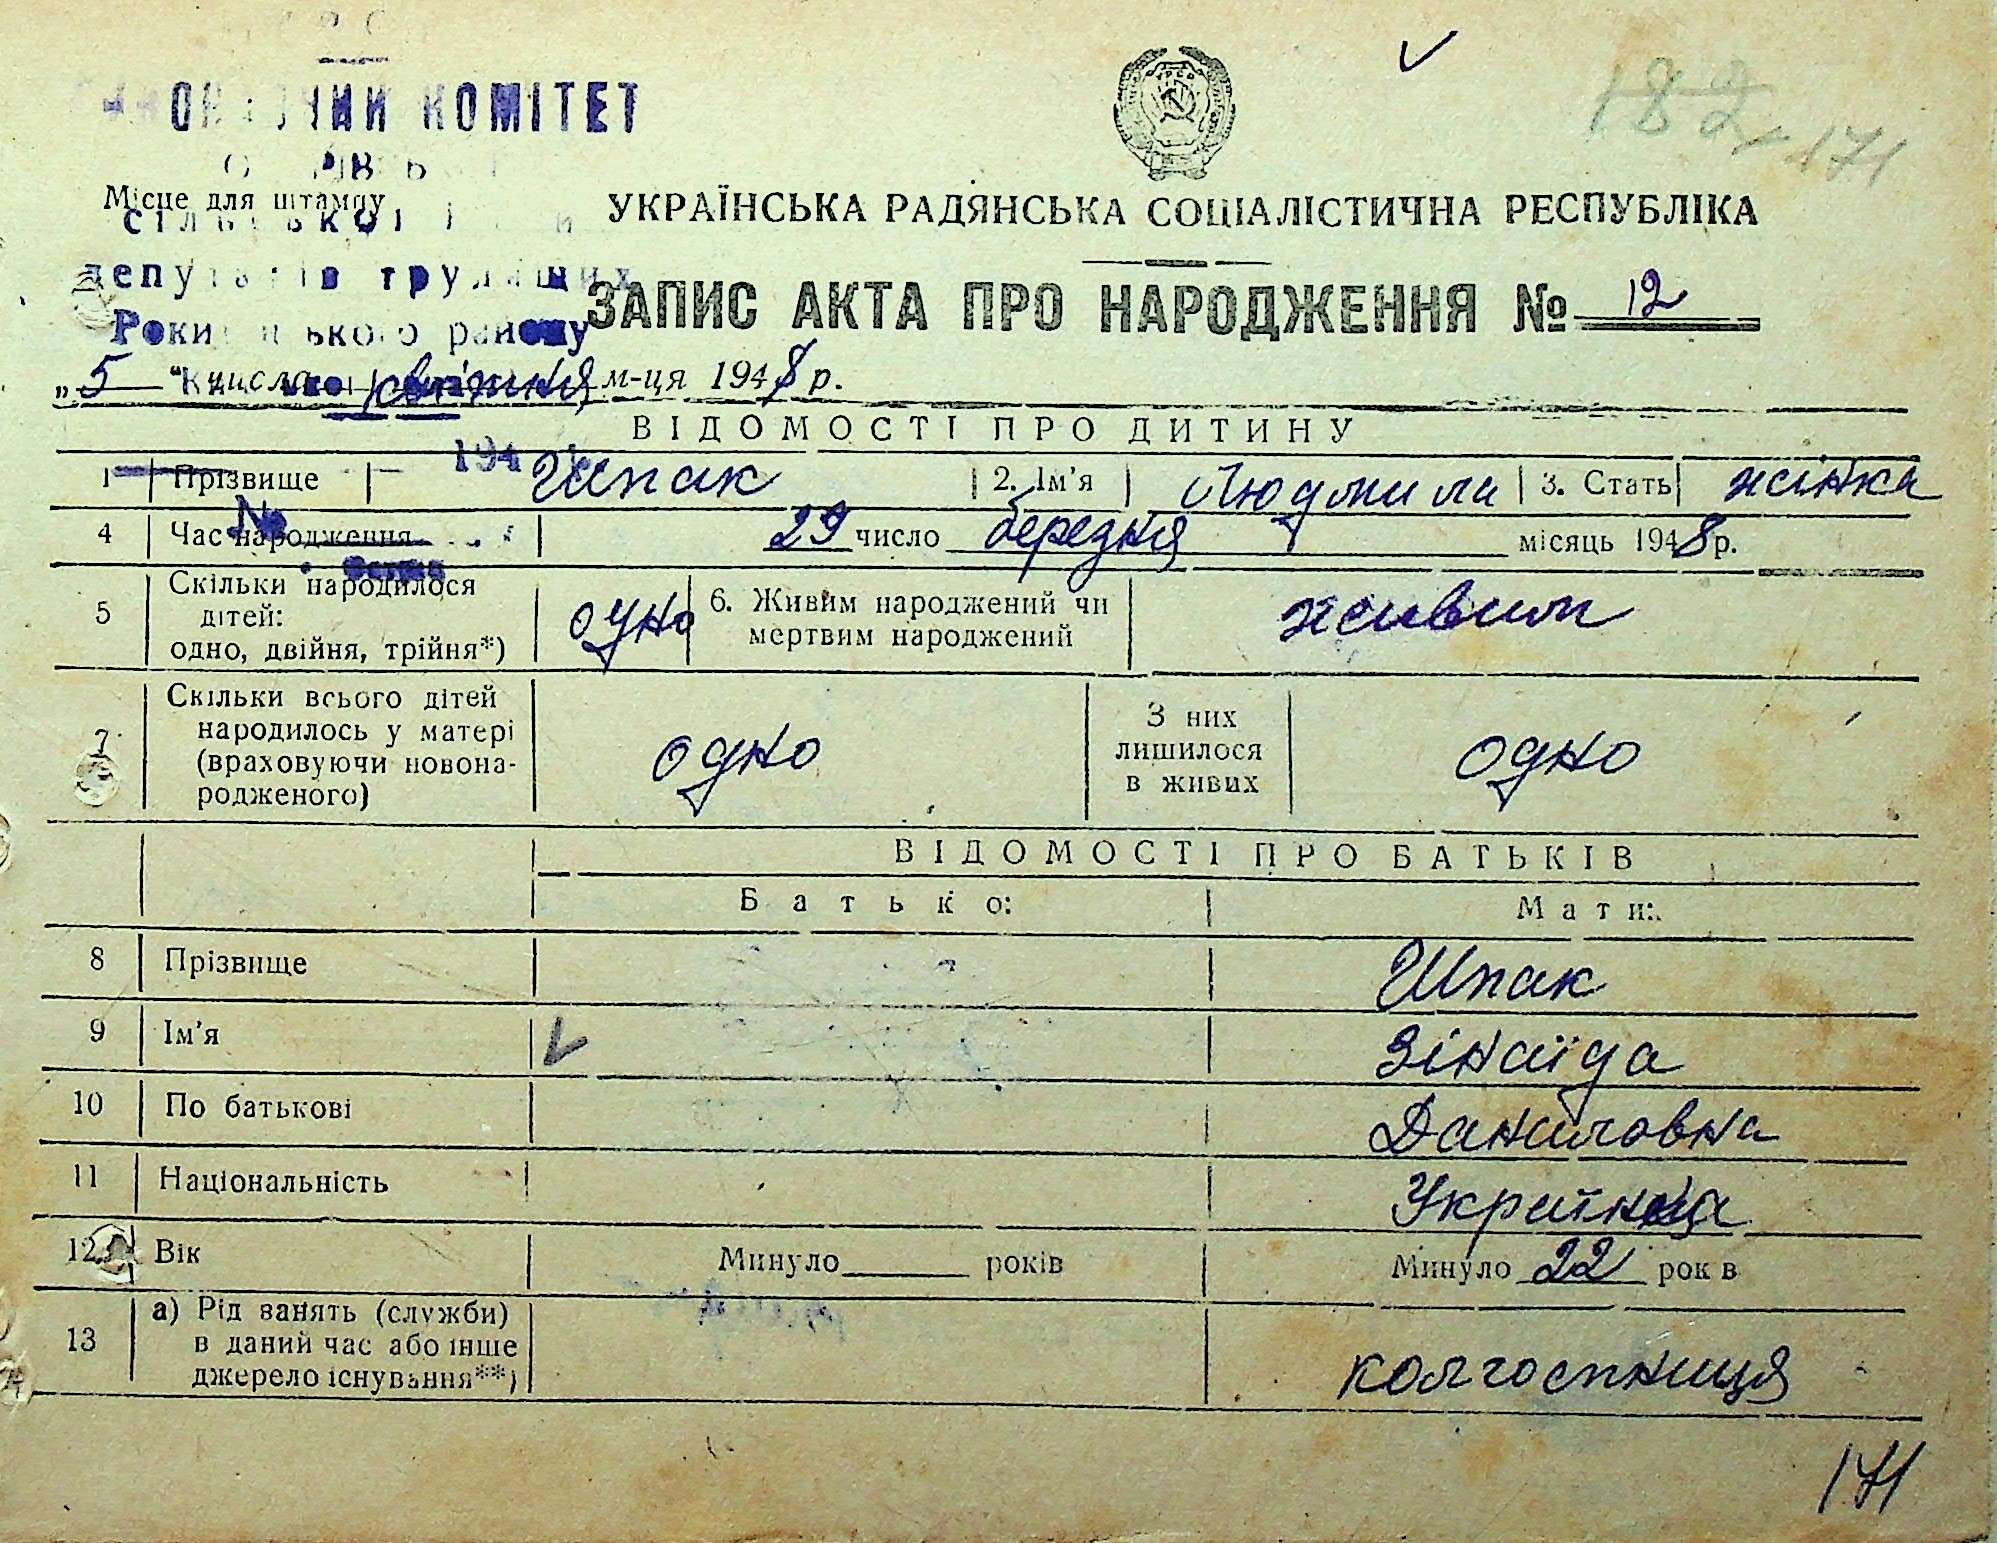 КОМІТЕТ
182 171
Місце для штампу
УКРАЇНСЬКА РАДЯНСЬКА СОЦІАЛІСТИЧНА РЕСПУБЛІКА
депутатів трудящих
ЗАПИС АКТА ПРО НАРОДЖЕННЯ № 12
району
„5“ числа квітня м-ця 1948 р.
ВІДОМОСТІ ПРО ДИТИНУ
194
1 Прізвище Шпак 2. Ім'я Людмила 3. Стать жінка
№
4 Час народження 29 число березня місяць 1948 р.
5 Скільки народилося дітей: одно, двійня, трійня*) одно 6. Живим народжений чи мертвим народжений живим
7 Скільки всього дітей народилось у матері (враховуючи новонародженого) одно З них лишилося в живих одно
ВІДОМОСТІ ПРО БАТЬКІВ
Батько: Мати:
8 Прізвище Шпак
9 Ім'я Зінаїда
10 По батькові Даниловна
11 Національність Українка
12 Вік Минуло років Минуло 22 рок в
13 а) Рід занять (служби) в даний час або інше джерело існування**) колгоспниця
171